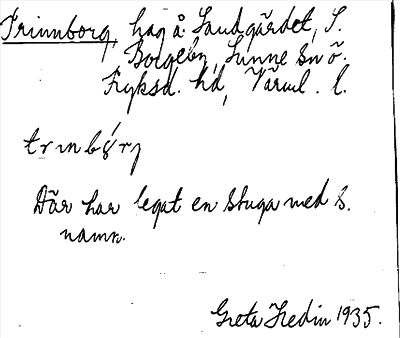 Trinnborg, hag å Sandgärdet, S.
Borgeby, Sunne sn ö.
Fryksd. hd, Värml. l.
trinbórj
Där har legat en stuga med s.
namn.
Greta Hedin 1935.